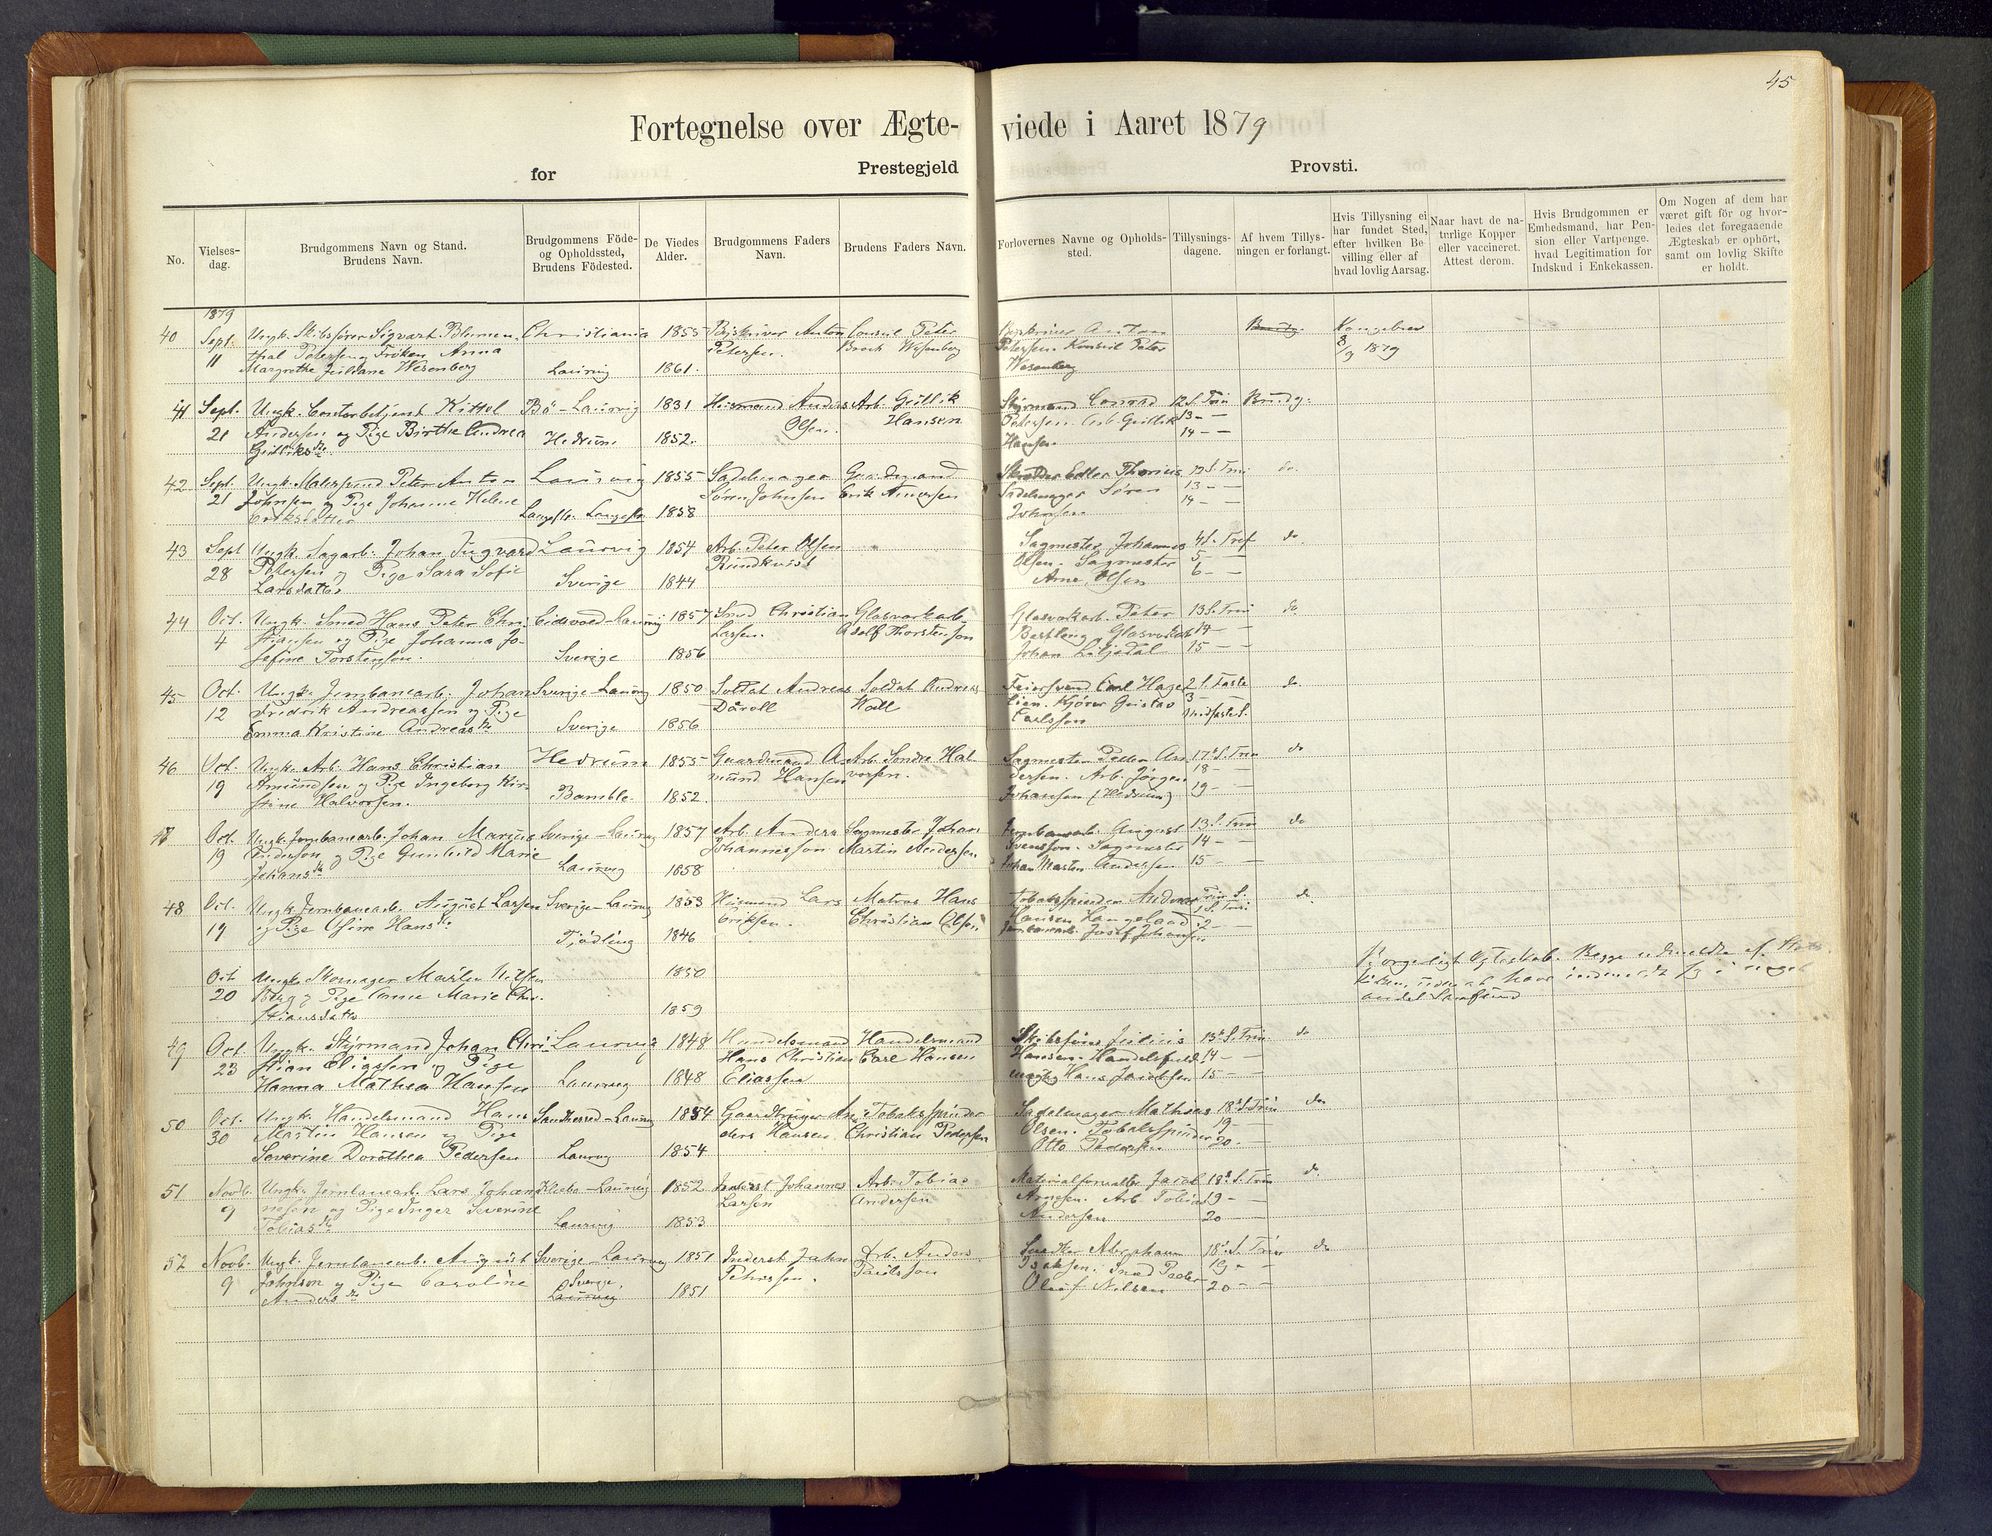 45
Fortegnelse over Ægte- viede i Aaret 1879
for Prestegjeld Provsti.
No.
Vielses-
dag.
Brudgommens Navn og Stand.
Brudens Navn.
Brudgommens Føde-
og Opholdssted,
Brudens Fødested.
De Viedes
Alder.
Brudgommens Faders
Navn.
Brudens Faders Navn.
Forlovernes Navne og Opholds-
sted.
Tillysnings-
dagene.
Af hvem Tillys-
ningen er forlangt.
Hvis Tillysning ei
har fundet Sted,
efter hvilken Be-
villing eller af
hvad lovlig Aarsag.
Naar havt de na-
turlige Kopper
eller vaccineret.
Attest derom.
Hvis Brudgommen er
Embedsmand, har Pen-
sion eller Vartpenge.
hvad Legitimation for
Indskud i Enkekassen.
Om Nogen af dem har
været gift før og hvor-
ledes det foregaaende
Ægteskab er ophørt,
samt om lovlig Skifte
er holdt.
1879
40 Sept. Ungk. Skibsfører Sigvart Blumen- Christiania 1855 Anton Consul Peter Anton Brudg. Kongebrev
11 thal Petersen og Frøken Anna Petersen. Brock Wesenberg Petersen. Konsul Peter 8/9 1879
Margrethe Juliane Wesenberg Laurvig 1861. Wesenberg
41 Sept. Ungk. Contorbetjent Kittel Bø-Laurvig 1831 Huusmand Anders Arb. Gullik Styrmand Conrad 12 S. Trin Brudg.
21 Andersen og Pige Birthe Andrea Olsen. Hansen Petersen. Arb. Gullik 13 - -
Gulliksdtr Hedrum 1852. Hansen 14 - -
42 Sept. Ungk. Malersvend Peter Anton Laurvig 1855 Sadelmager Gaardmand Thorius 12 S. Trin do.
21 Johnsen og Pige Johanne Helene Søren Johnsen Erik Andersen Sadelmager Søren 13 - -
Eriksdatter 1858 Johnsen 14 - -
43 Sept Ungk. Sagarb. Johan Ingvard Laurvig 1854 Arb. Peter Olsen Sagmester Johannes 4 S. Tref do.
28 Petersen og Pige Sara Sofie Rundkvist Olsen. Sagmester 5 - -
Larsdatter Sverige 1844 Arne Olsen 6 - -
44 Oct. Ungk. Smed Hans Peter Chri- Eidsvold-Laurvig 1857 Smed Christian Glasværkarb. Glasværkarb. Peter 13 S. Trin do.
4 stiansen og Pige Johanna Jo- Larsen. Adolf Thorstenson Glasværksarb 14 - -
sefine Torstenson. Sverige 1856 Johan Liljedal 15 - -
45 Oct. Ungk. Jernbanearb. Johan Sverige-Laurvig 1850 Soldat Andreas Soldat Andreas Carl Hage- 2 S. Faste do.
12 Fredrik Andreassen og Pige Gustav 3
Emma Kristine Andreasdtr Sverige 1856 Carlsson Midfaste S.
46 Oct. Ungk. Arb. Hans Christian Hedrum 1855 Gaardmand A- Arb. Sondre Hal- Sagmester Peder An- 17 S. Trin do
19 Amundsen og Pige Ingeborg Kir- mund Hansen vorsen. dersen. Arb. Jørgen 18 - -
stine Halvorsen. Bamble. 1852. Johansen (Hedrum) 19 - -
47 Oct. Ungk. Jernbanearb. Johan Marcus Sverige-Laurvig 1857 Arb. Anders Sagmester Johan Jernbanearb. August 13 S. Trin do
19 Anderson og Pige Gunhild Marie Johannesson Martin Andersen Svensson. Sagmester 14 - -
Johansdtr Laurvig 1858 Johan Martin Andersen 15 - -
48 Oct. Ungk. Jernbanearb. August Larsen Sverige-Laurvig 1853 Huusmand Lars Matros Hans Tobakspinder Anders Trin S. do.
19 og Pige Hansdtr Eriksen. Christian Olsen Hansen Langeland. 1 S. Trin
Tjødling 1846 Jernbanearb. Josef Johansen 2 -
Oct Ungk. Skomager Martin Nilsen 1850 Borgerligt Ægteskab. Begge udmeldte af Stats-
20 Berg og Pige Anne Marie Chri- kirken, uden at have indmeldt sig i noget
stiansdatter 1859 andet Samfund
49 Oct. Ungk. Styrmand Johan Chri- Laurvig 1848 Handelsmand Handelsmand Skibsfører Julius 13 S. Trin do
23 stian Eliassen og Pige Hans Christian Carl Hansen Hansen. Handelsfuld- 14 - -
Hanna Mathea Hansen Laurvig 1848 Eliassen mægtig Hans Jacobsen 15 - -
50 Oct. Ungk. Handelsmand Hans Sandherred-Laurvig 1854 Gaardbruger An- Tobaksspinder Sadelmager Mathias 18 S. Trin do
30 Martin Hansen og Pige ders Hansen. Christian Pedersen Olsen. Tobaksspinder 19 -
Severine Dorothea Pedersen Laurvig 1854 Otto Pedersen 20 -
51 Novb. Ungk. Jernbanearb. Lars Johan- Laurvig 1852 Johannes Arb. Tobias Materialforvalter Jacob 18 S. Trin do.
9 nesen og Pige Inger Severine Larsen Andersen Arnesen. Arb. Tobias 19 - -
Tobiasdtr Laurvig 1853 Andersen 20 - -
52 Novb. Ungk. Jernbanearb. August Sverige-Laurvig 1851 Inderst John Arb. Anders Snedker Abraham 18 S. Trin do
9 Johnson og Pige Caroline Sverige. Paulsson Isaksen. 19 -
Andersdtr Laurvig 1851 Oluf Nilsen 20 - -